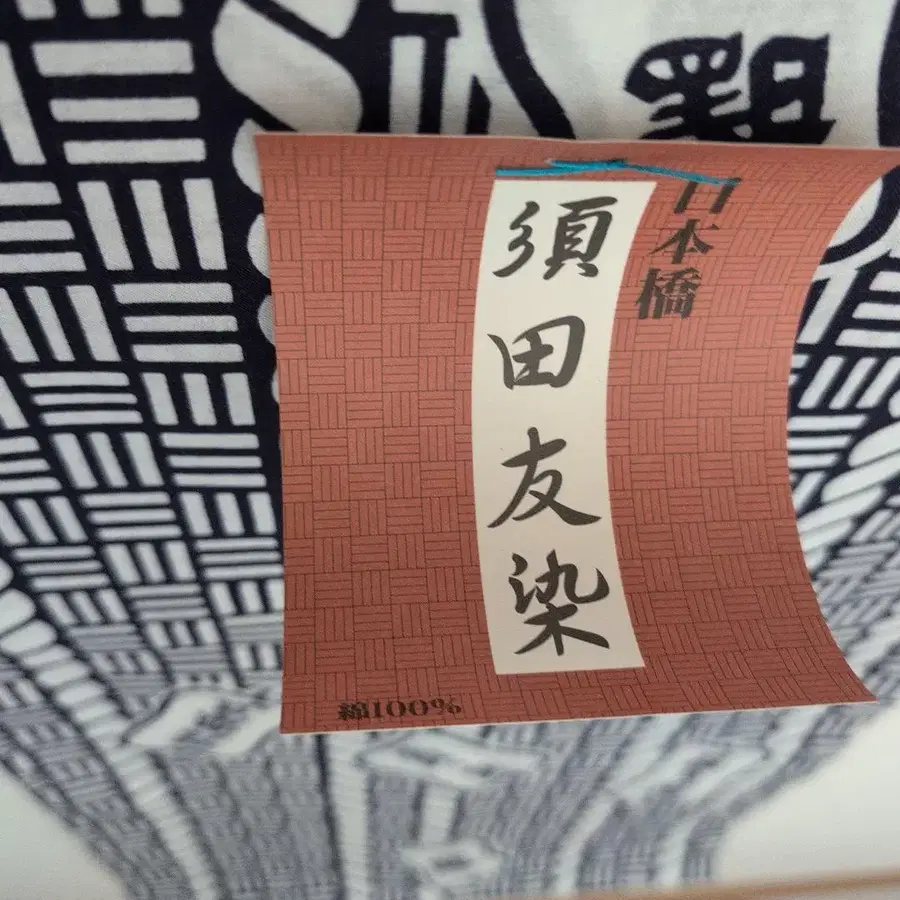 日本橋
須田友染
綿100%